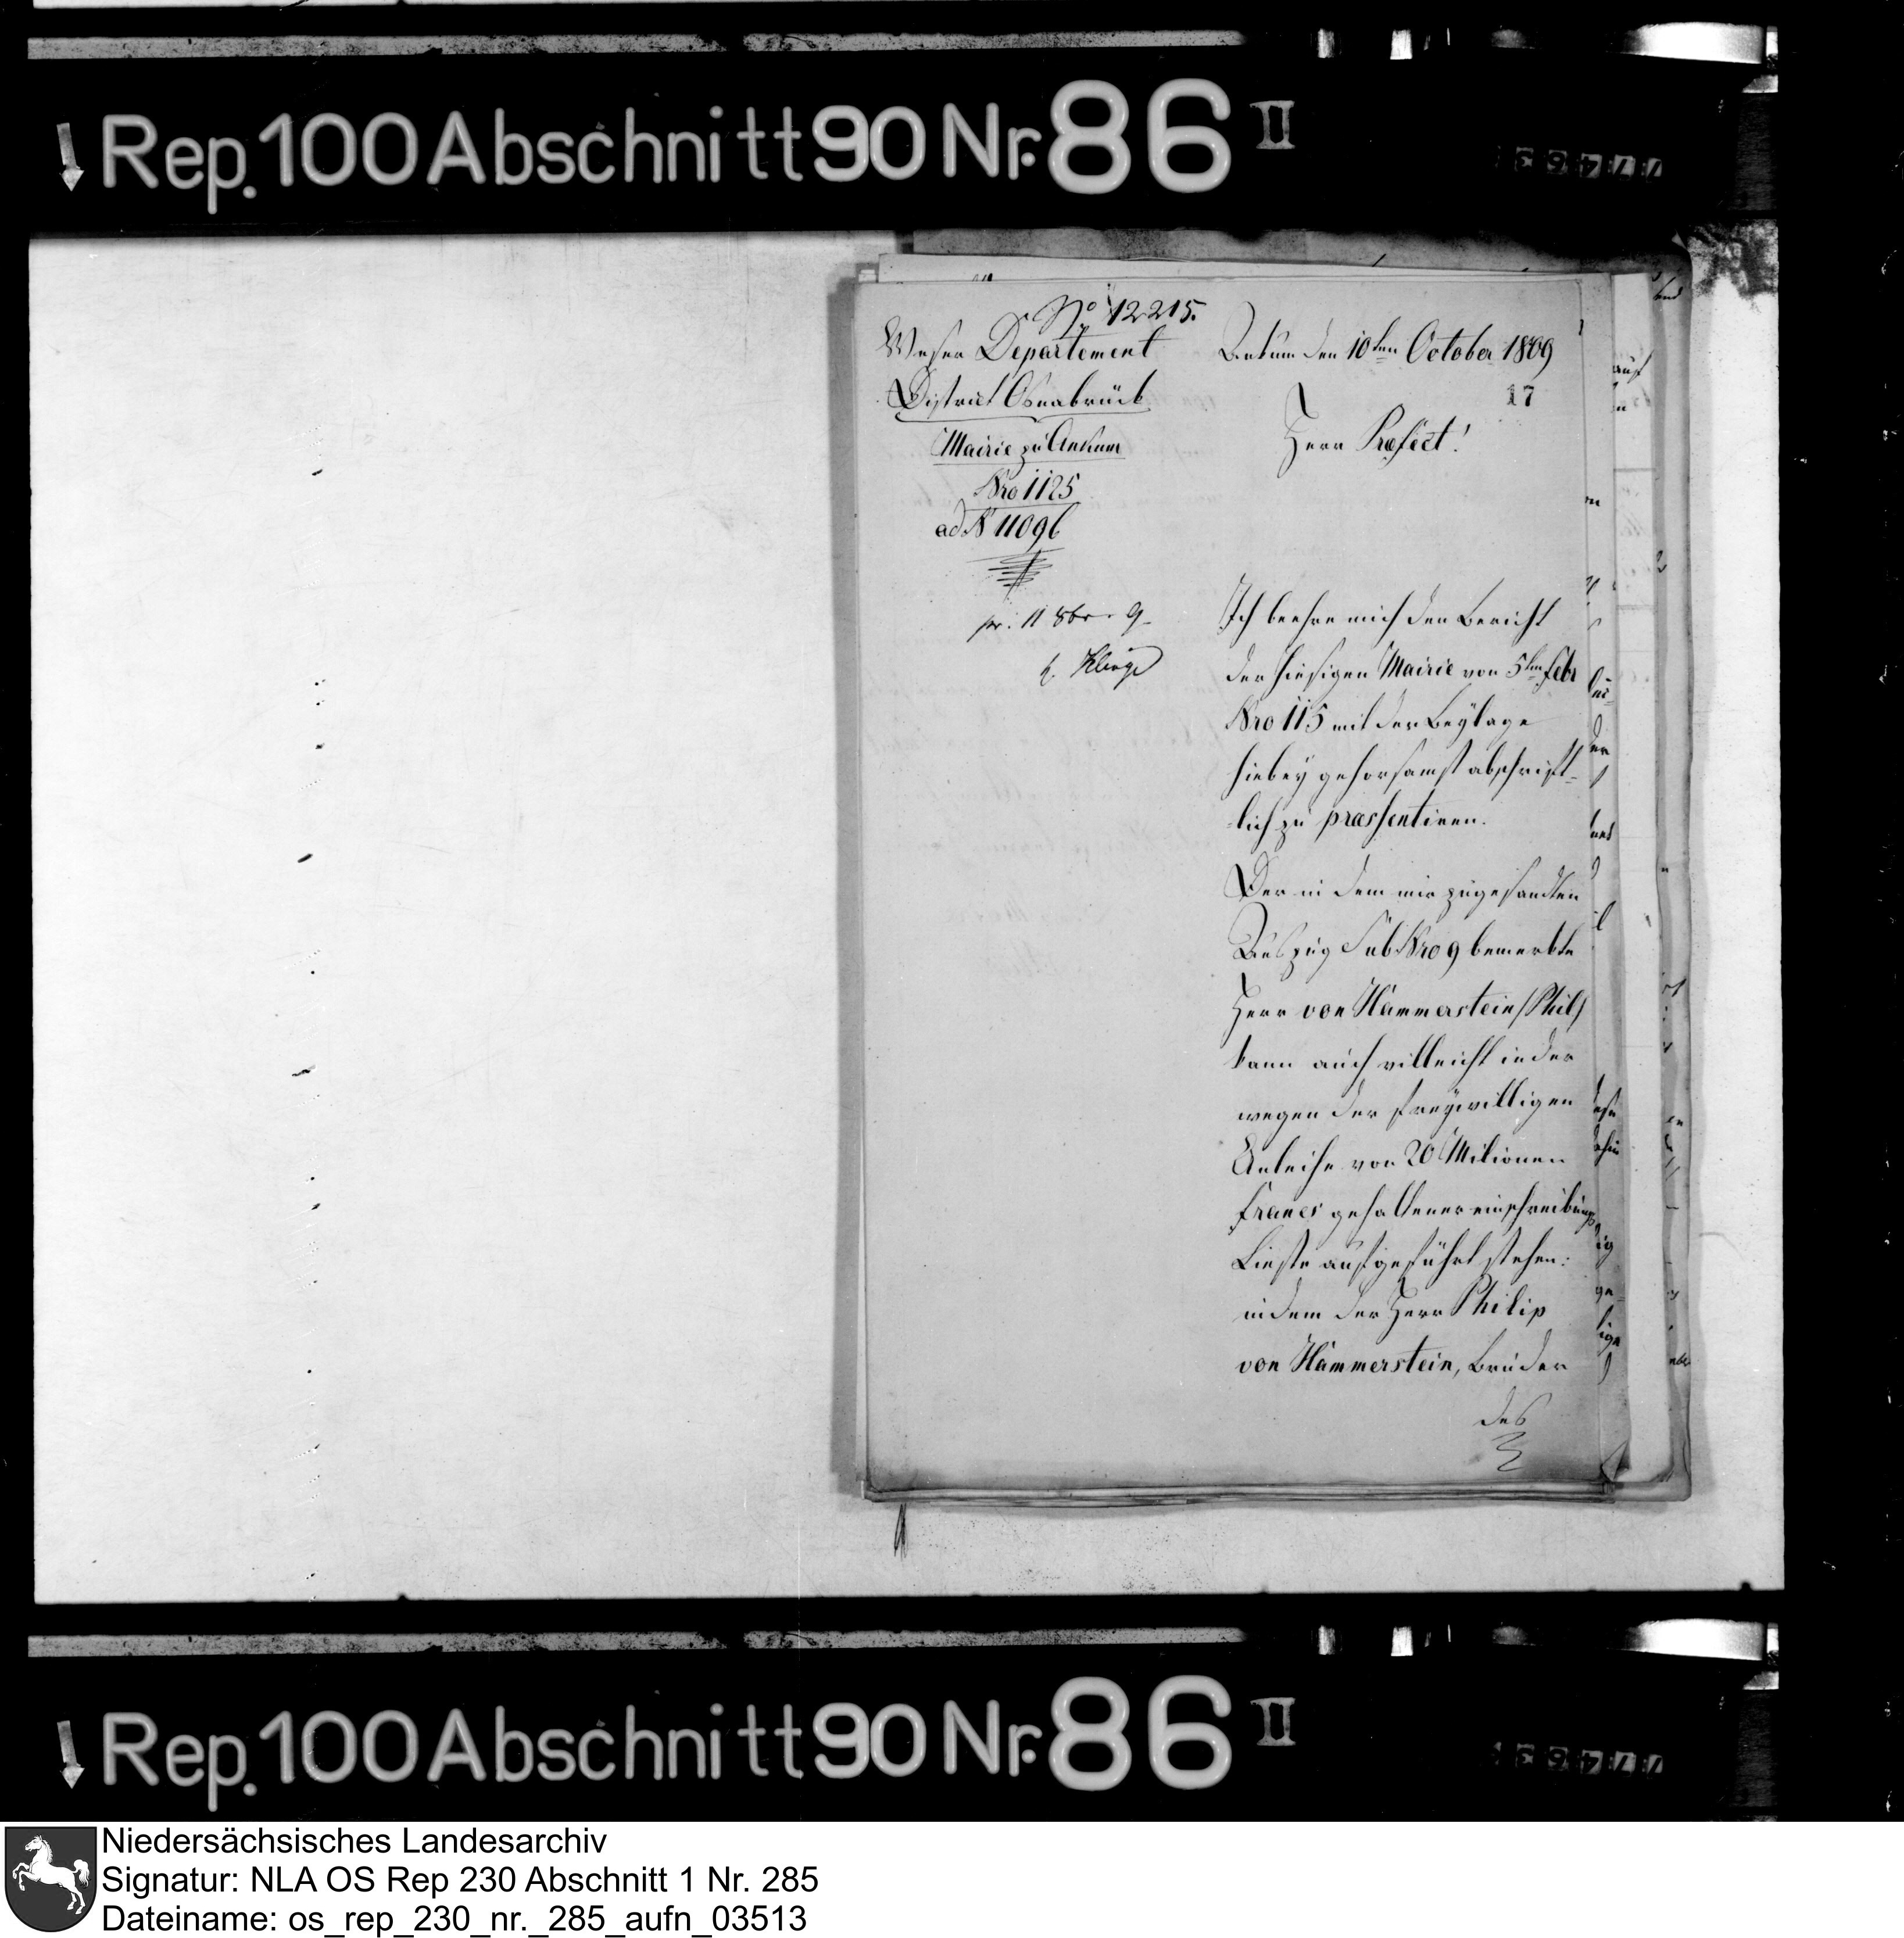 Rep. 100 Abschnitt 90 Nr. 86 II
77463
No 12215.
Weser Departement
District Osnabrück
Mairie zu Ankum
Nro 1125
ad N 11096
pr. 11 8br. 9
Kling
Ankum den 10ten October 1809
17
Herr Præfect!
Ich beehre mich den Bericht
der hiesigen Mairie von 5ten Febr
Nro 115 mit der Beylage
hiebey gehorsamst abschrift-
lich zu præsentiren.
Der in dem mir zugesandten
Auszug Sub Nro 9 bemerkte
Herr von Hammerstein (Phil)
kann auch villeicht in der
wegen der freywilligen
Anleihe von 20 Milionen
Francs gehaltener einschreibungs
Lieste aufgeführt stehen:
indem der Herr Philip
von Hammerstein, Bruder
des
Rep. 100 Abschnitt 90 Nr. 86 II
77463
Niedersächsisches Landesarchiv
Signatur: NLA OS Rep 230 Abschnitt 1 Nr. 285
Dateiname: os_rep_230_nr._285_aufn_03513